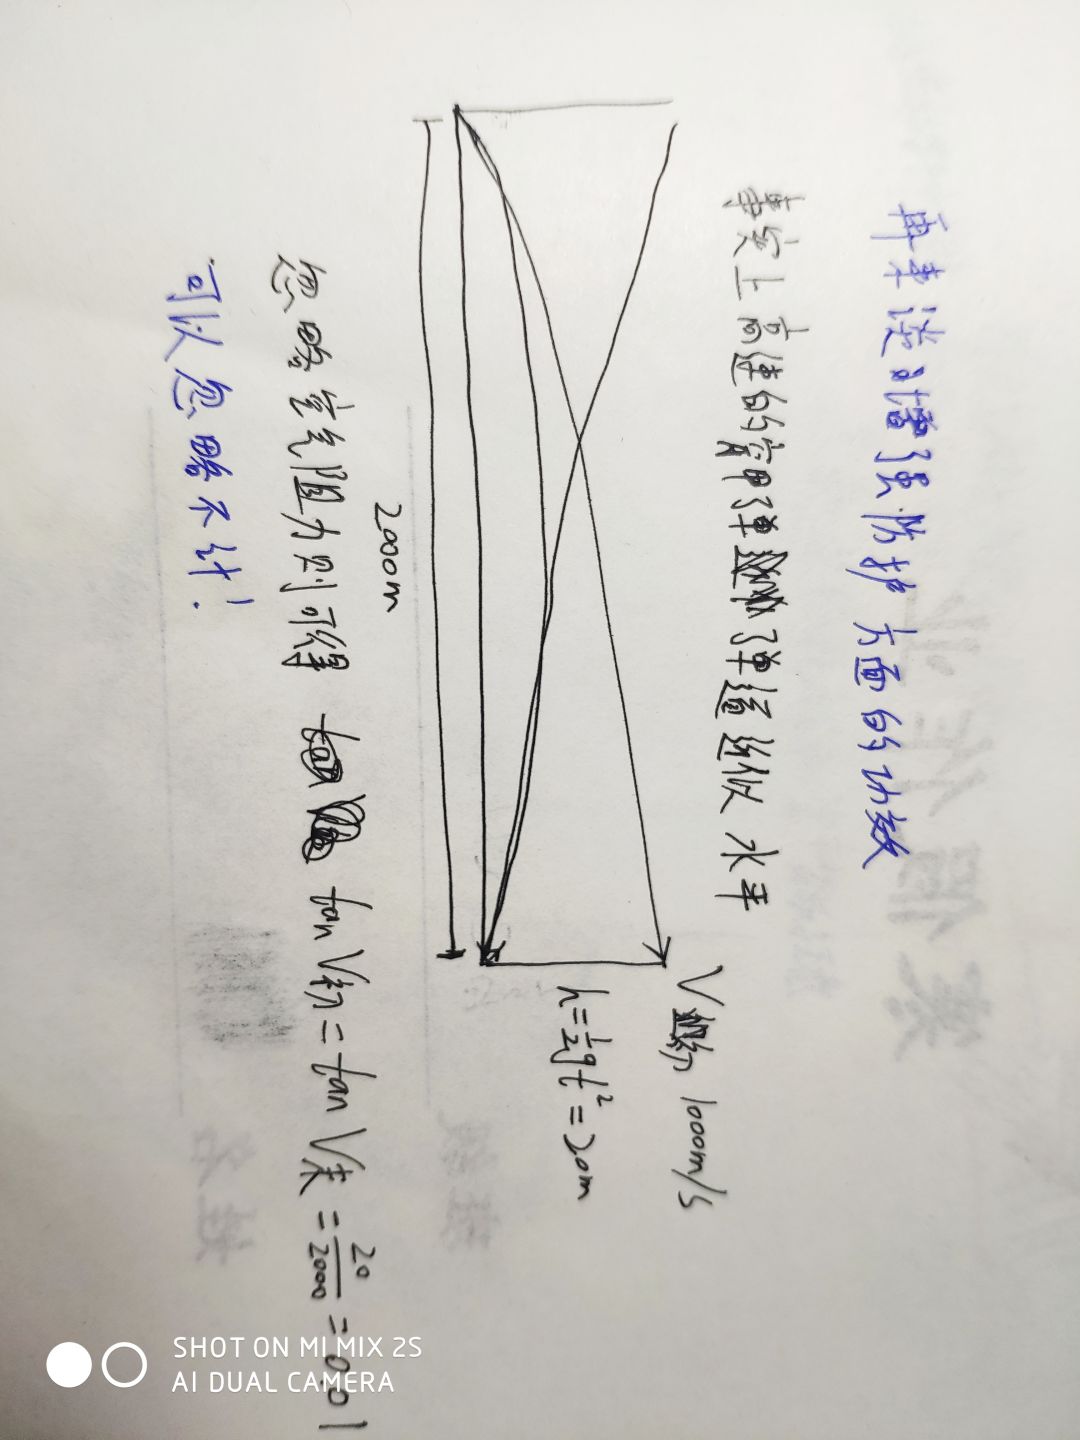 再来谈谈增强防护方面的功效
事实上高速的穿甲弹弹道近似水平
V初 1000m/s
h=½gt²=20m
2000m
忽略空气阻力则可得 tan V初=tan V末=20/2000=0.01
可以忽略不计!
SHOT ON MI MIX 2S
AI DUAL CAMERA